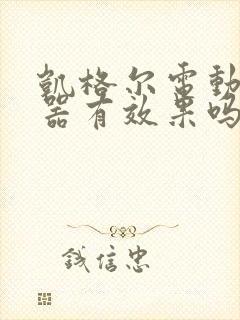 凯格尔电動
器有效果吗
钱信忠